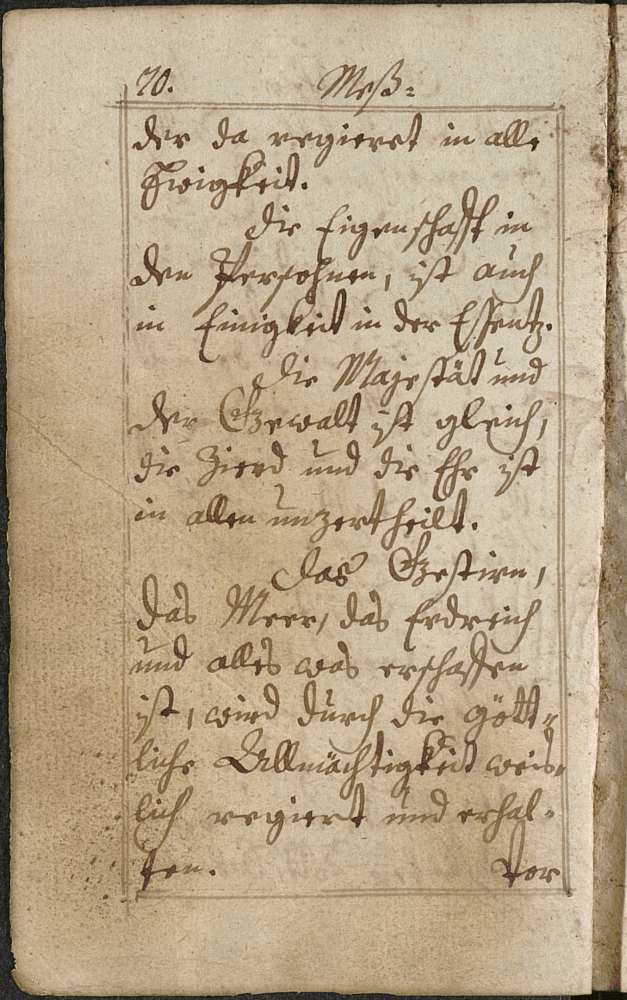 70. Meß=
der da regieret in alle
Ewigkeit.
Die Eigenschafft in
den Persohnen, ist auch
in Einigkeit in der Essentz.
Die Majestät und
der Gewalt ist gleich,
die Zierd und die Ehr ist
in allen unzertheilt.
Das Gestirn,
das Meer, das Erdreich
und alles was erschaffen
ist, wird durch die gött=
liche Allmächtigkeit weis=
lich regiert und erhal=
ten. vor